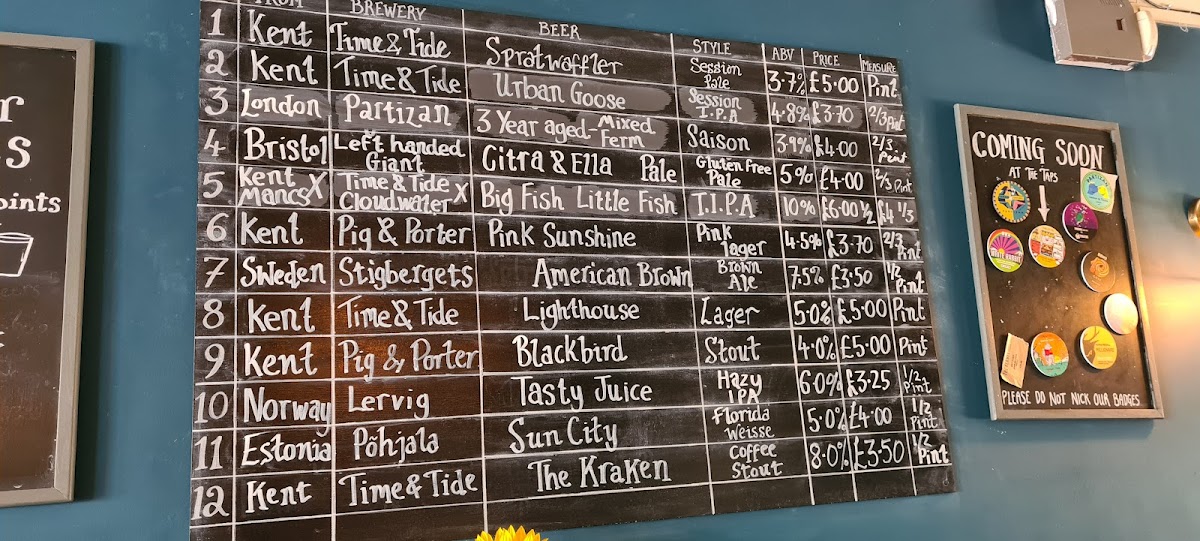 FROM BREWERY BEER STYLE ABV PRICE MEASURE
1 Kent Time & Tide Spratwaffler Session Pale 3.7% £5.00 Pint
2 Kent Time & Tide Urban Goose Session I.P.A 4.8% £3.70 2/3 Pint
3 London Partizan 3 Year aged - Mixed Ferm Saison 3.9% £4.00 2/3 Pint
4 Bristol Left handed Giant Citra & Ella Pale Gluten Free Pale 5% £4.00 2/3 Pint
5 Kent X Mancs Time & Tide X Cloudwater Big Fish Little Fish T.I.P.A 10% £6.00 1/2 £4 1/3
6 Kent Pig & Porter Pink Sunshine Pink lager 4.5% £3.70 2/3 Pint
7 Sweden Stigbergets American Brown Brown Ale 7.5% £3.50 1/2 Pint
8 Kent Time & Tide Lighthouse Lager 5.0% £5.00 Pint
9 Kent Pig & Porter Blackbird Stout 4.0% £5.00 Pint
10 Norway Lervig Tasty Juice Hazy IPA 6.0% £3.25 1/2 Pint
11 Estonia Põhjala Sun City Florida Weisse 5.0% £4.00 1/2 Pint
12 Kent Time & Tide The Kraken Coffee Stout 8.0% £3.50 1/2 Pint
COMING SOON
AT THE TAPS
PLEASE DO NOT NICK OUR BADGES